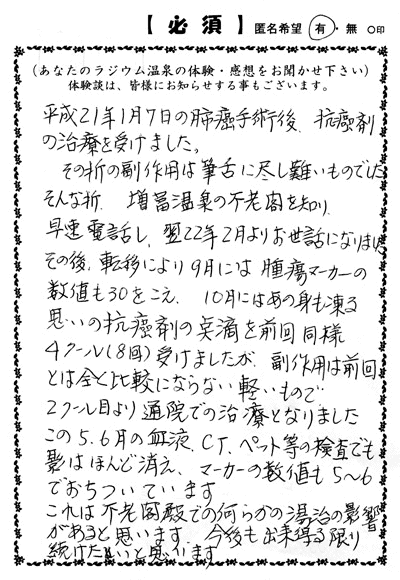 【必須】 匿名希望 有・無 ○印
（あなたのラジウム温泉の体験・感想をお聞かせ下さい）
体験談は、皆様にお知らせする事もございます。
平成21年1月7日の肺癌手術後、抗癌剤
の治療を受けました。
その折の副作用は筆舌に尽し難いものでした
そんな折、増冨温泉の不老閣を知り、
早速電話し、翌22年2月よりお世話になりました
その後、転移により9月には腫瘍マーカーの
数値も30をこえ、10月にはあの身も凍る
思いの抗癌剤の点滴を前回同様
4クール(8回)受けましたが、副作用は前回
とは全く比較にならない軽いもので
2クール目より通院での治療となりました
この5.6月の血液、CT、ペット等の検査でも
影はほんど消え、マーカーの数値も5〜6
でおちついています
これは不老閣殿での何らかの湯治の影響
があると思います。今後も出来得る限り
続けたいと思います